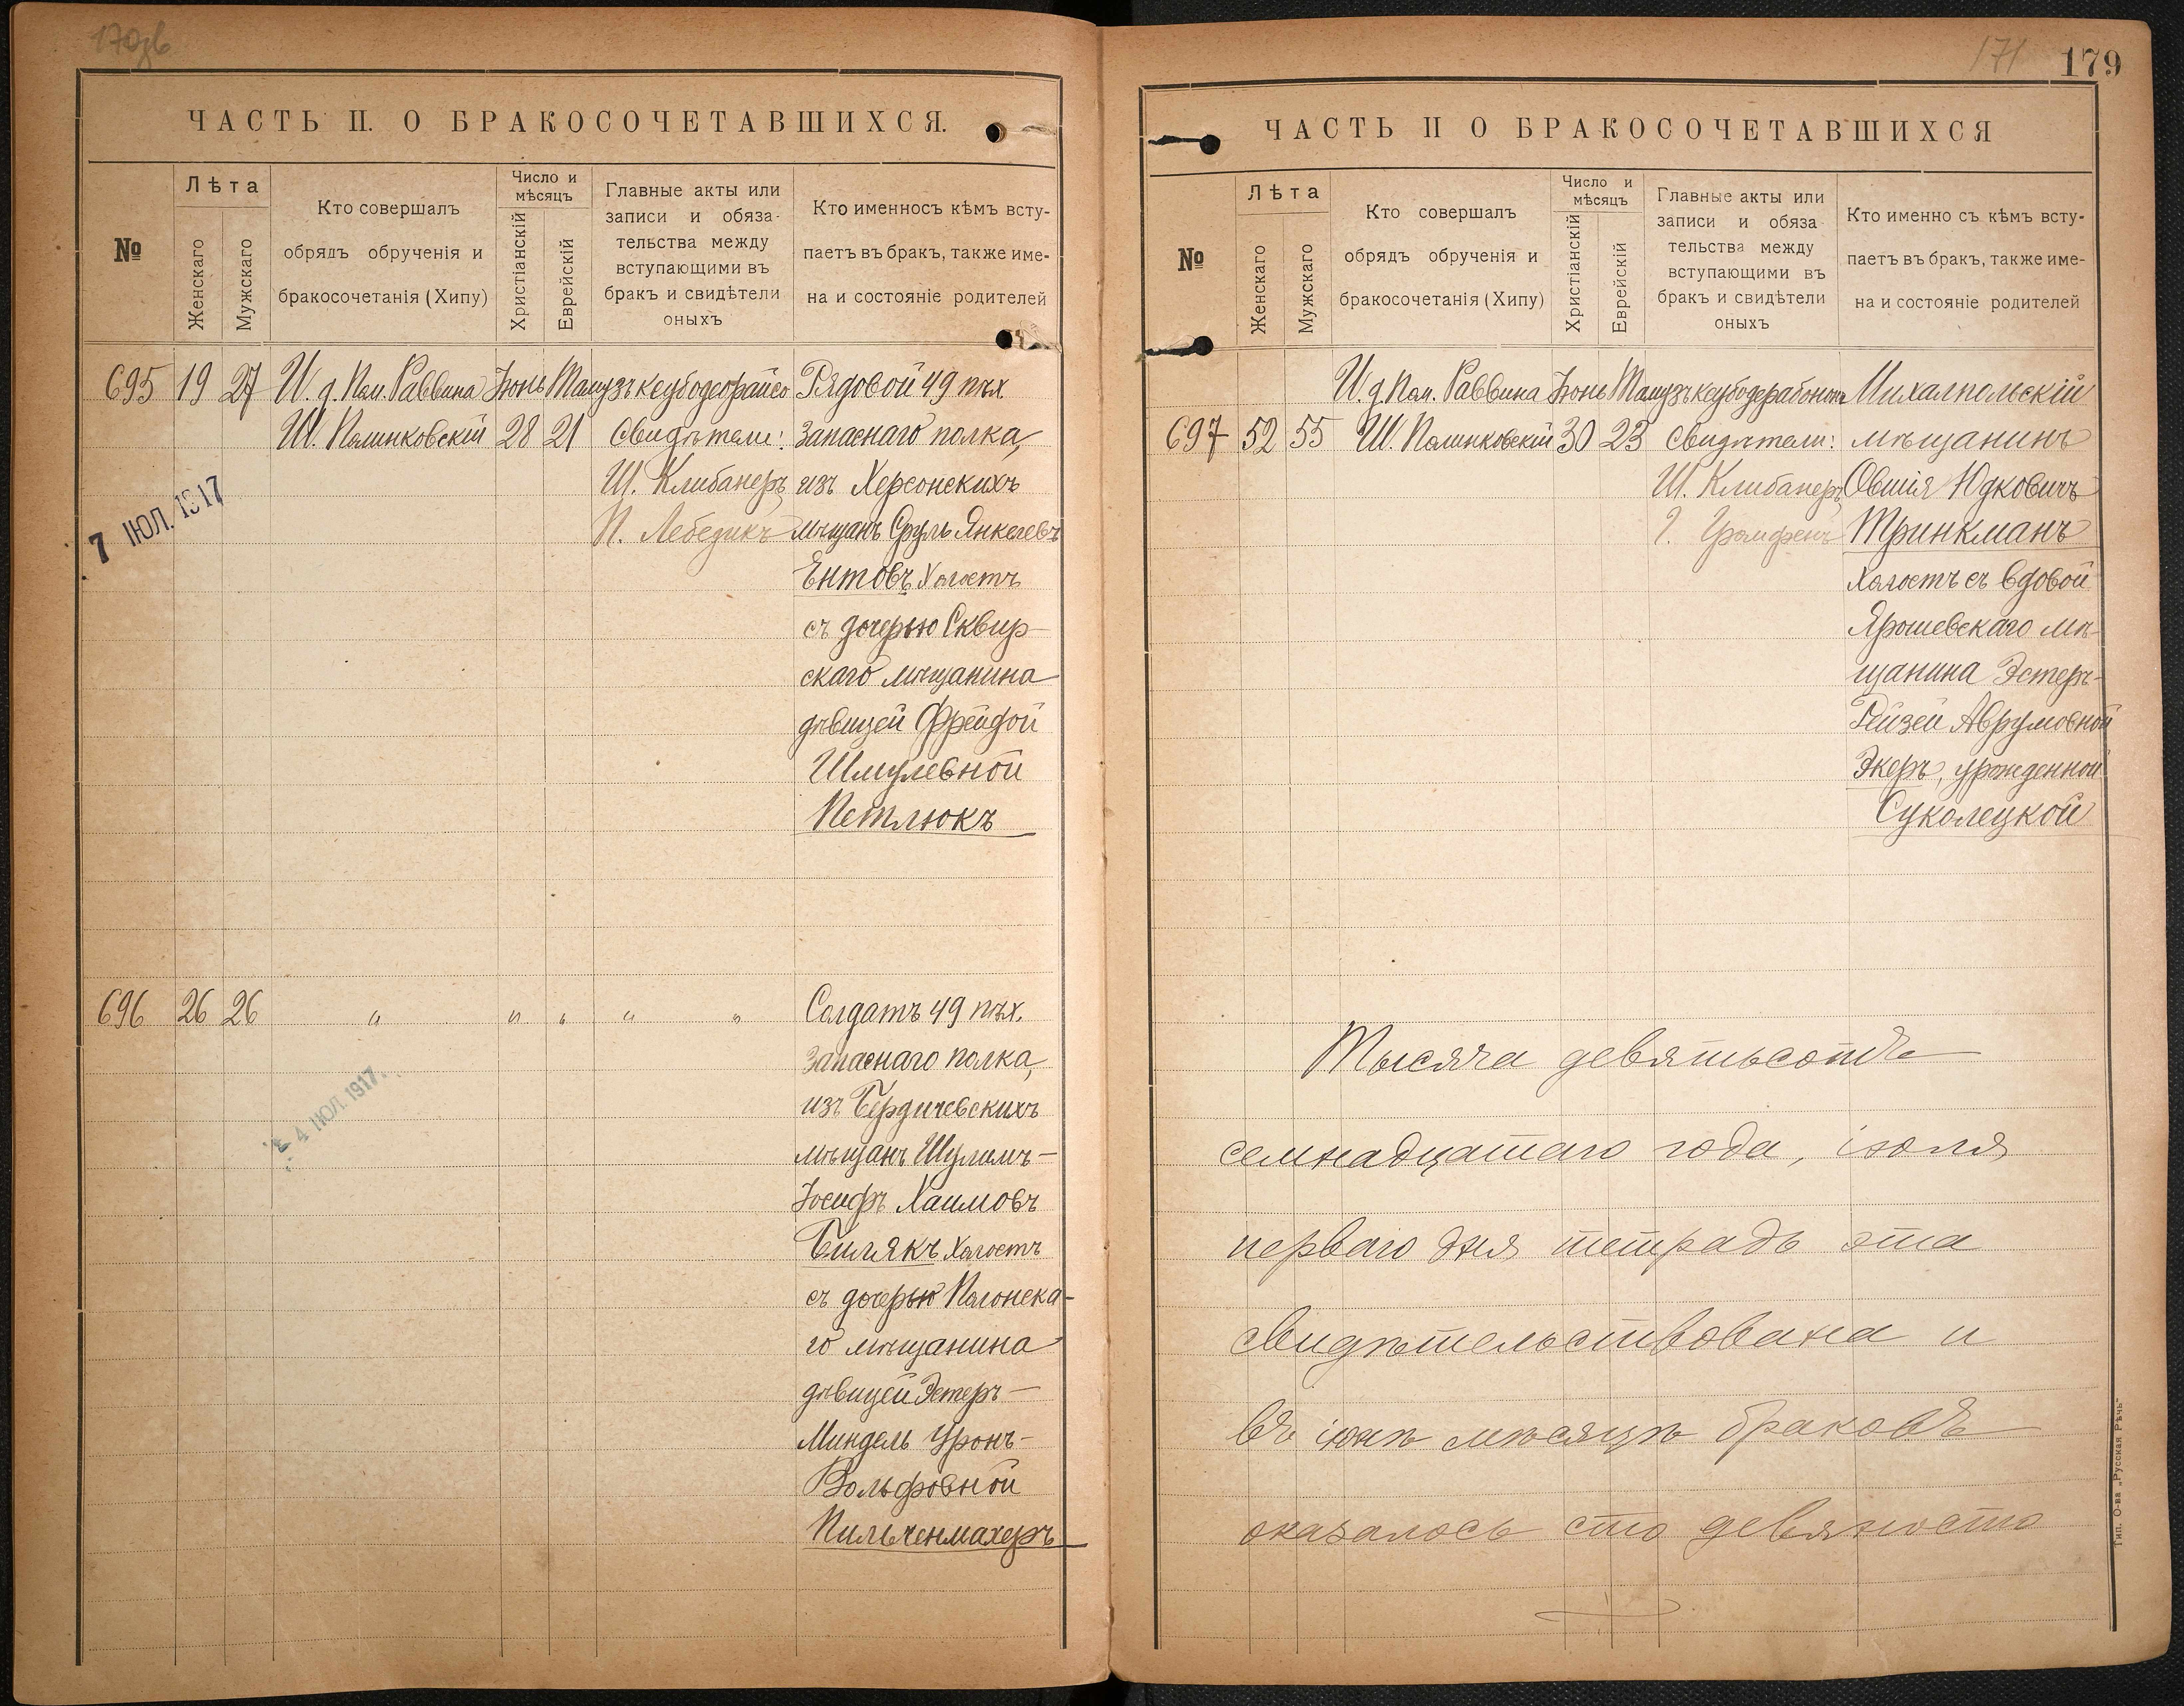 170зв
ЧАСТЬ II. О БРАКОСОЧЕТАВШИХСЯ.
№
Лѣта
Женскаго
Мужскаго
Кто совершалъ
обрядъ обрученія и
бракосочетанія (Хипу)
Число и
мѣсяцъ
Христіанскій
Еврейскій
Главные акты или
записи и обяза-
тельства между
вступающими въ
бракъ и свидѣтели
оныхъ
Кто именносъ кѣмъ всту-
паетъ въ бракъ, также име-
на и состояніе родителей
695 19 27 И. д. Пом. Раввина Іюнь Тамузъ Рядовой 49 пѣх.
28 21 Свидѣтели: запаснаго полка,
Ш. Клибанеръ изъ Херсонскихъ
П. Лебедикъ мѣщанъ Сруль Янкелевъ
Ентовъ холостъ
съ дочерью Сквир-
скаго мѣщанина
дѣвицей Фрейдой
Шмулевной
Петлюкъ
7 ІЮЛ. 1917
696 26 26 " " " " " Солдатъ 49 пѣх.
запаснаго полка,
изъ Бердичевскихъ
мѣщанъ Шулимъ-
Іосифъ Хаимовъ
Билякъ холостъ
съ дочерью Полонска-
го мѣщанина
дѣвицей Эстеръ-
Миндель
Вольфовной
Пильченмахеръ
4 ІЮЛ. 1917
171
179
ЧАСТЬ II О БРАКОСОЧЕТАВШИХСЯ
№
Лѣта
Женскаго
Мужскаго
Кто совершалъ
обрядъ обрученія и
бракосочетанія (Хипу)
Число и
мѣсяцъ
Христіанскій
Еврейскій
Главные акты или
записи и обяза
тельства между
вступающими въ
бракъ и свидѣтели
оныхъ
Кто именно съ кѣмъ всту-
паетъ въ бракъ, также име-
на и состояніе родителей
И. д. Пом. Раввина Іюнь Тамузъ Михалпольскій
697 52 55 30 23 Свидѣтели: мѣщанинъ
Ш. Клибанеръ Овшія Юдковичъ
Тринкманъ
холостъ съ вдовой
Ярошевскаго мѣ-
щанина Эстеръ-
Рейзей Аврумовной
Экеръ, урожденной
Суколецкой
Тысяча девятьсотъ
семнадцатаго года, іюля
перваго дня тетрадь эта
свидѣтельствована и
въ іюнѣ мѣсяцѣ браковъ
оказалось сто девяносто
Тип. О-ва „Русская Рѣчь"